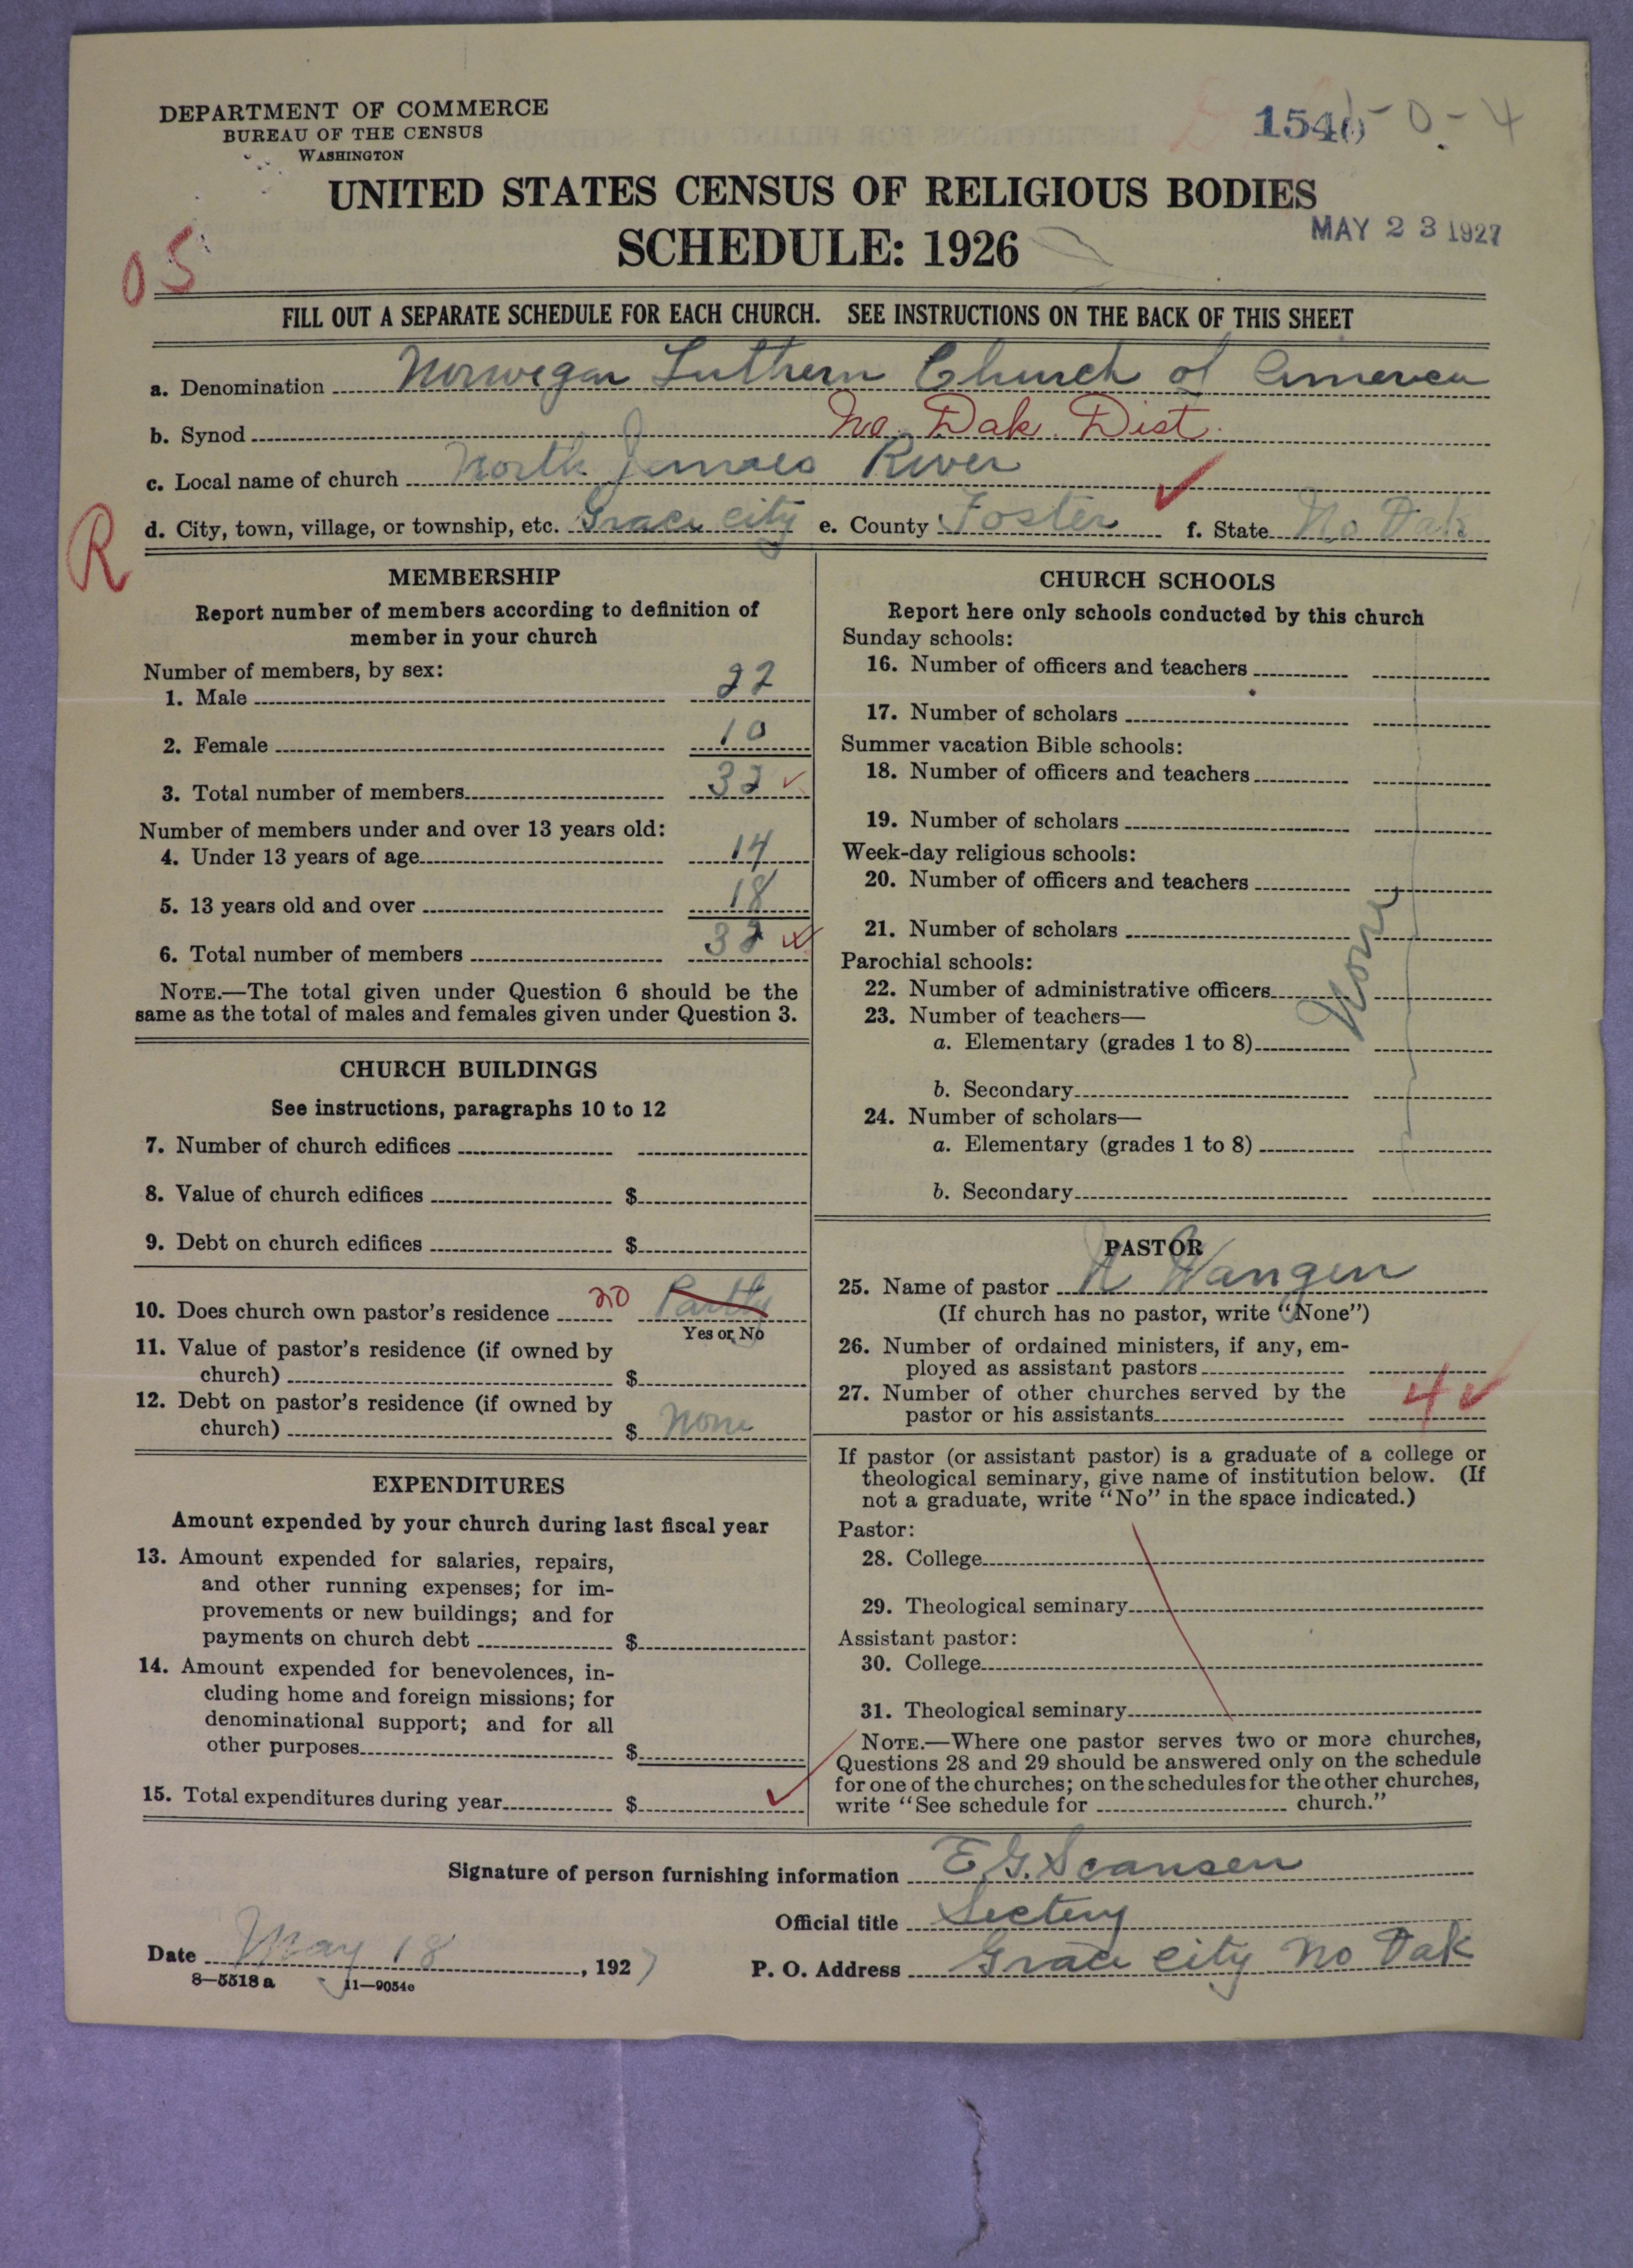 DEPARTMENT OF COMMERCE
BUREAU OF THE CENSUS
WASHINGTON
0-4
UNITED STATES CENSUS OF RELIGIOUS BODIES
MAY 23 1927
SCHEDULE: 1926
05
FILL OUT A SEPARATE SCHEDULE FOR EACH CHURCH. SEE INSTRUCTIONS ON THE BACK OF THIS SHEET
a. Denomination Norwegan Luthern Church of America
b. Synod No. Dak. Dist.
c. Local name of church North James River
R
d. City, town, village, or township, etc. Grace city e. County Foster f. State No Dak
MEMBERSHIP
Report number of members according to definition of
member in your church
Number of members, by sex:
1. Male 22
2. Female 10
3. Total number of members 32
Number of members under and over 13 years old:
4. Under 13 years of age 14
5. 13 years old and over 18
6. Total number of members 32
NOTE.—The total given under Question 6 should be the
same as the total of males and females given under Question 3.
CHURCH BUILDINGS
See instructions, paragraphs 10 to 12
7. Number of church edifices
8. Value of church edifices $
9. Debt on church edifices $
10. Does church own pastor's residence no Partly
Yes or No
11. Value of pastor's residence (if owned by
church) $
12. Debt on pastor's residence (if owned by
church) $ None
EXPENDITURES
Amount expended by your church during last fiscal year
13. Amount expended for salaries, repairs,
and other running expenses; for im-
provements or new buildings; and for
payments on church debt $
14. Amount expended for benevolences, in-
cluding home and foreign missions; for
denominational support; and for all
other purposes $
15. Total expenditures during year $
CHURCH SCHOOLS
Report here only schools conducted by this church
Sunday schools:
16. Number of officers and teachers
17. Number of scholars
Summer vacation Bible schools:
18. Number of officers and teachers
19. Number of scholars
Week-day religious schools:
20. Number of officers and teachers
21. Number of scholars
None
Parochial schools:
22. Number of administrative officers
23. Number of teachers—
a. Elementary (grades 1 to 8)
b. Secondary
24. Number of scholars—
a. Elementary (grades 1 to 8)
b. Secondary
PASTOR
25. Name of pastor N Wangen
(If church has no pastor, write "None")
26. Number of ordained ministers, if any, em-
ployed as assistant pastors
27. Number of other churches served by the
pastor or his assistants 4
If pastor (or assistant pastor) is a graduate of a college or
theological seminary, give name of institution below. (If
not a graduate, write "No" in the space indicated.)
Pastor:
28. College
29. Theological seminary
Assistant pastor:
30. College
31. Theological seminary
NOTE.—Where one pastor serves two or more churches,
Questions 28 and 29 should be answered only on the schedule
for one of the churches; on the schedules for the other churches,
write "See schedule for church."
Signature of person furnishing information E G. Scansen
Official title Sectery
Date May 18, 1927
P. O. Address Grace city No Dak
8—5518 a 11—9054c